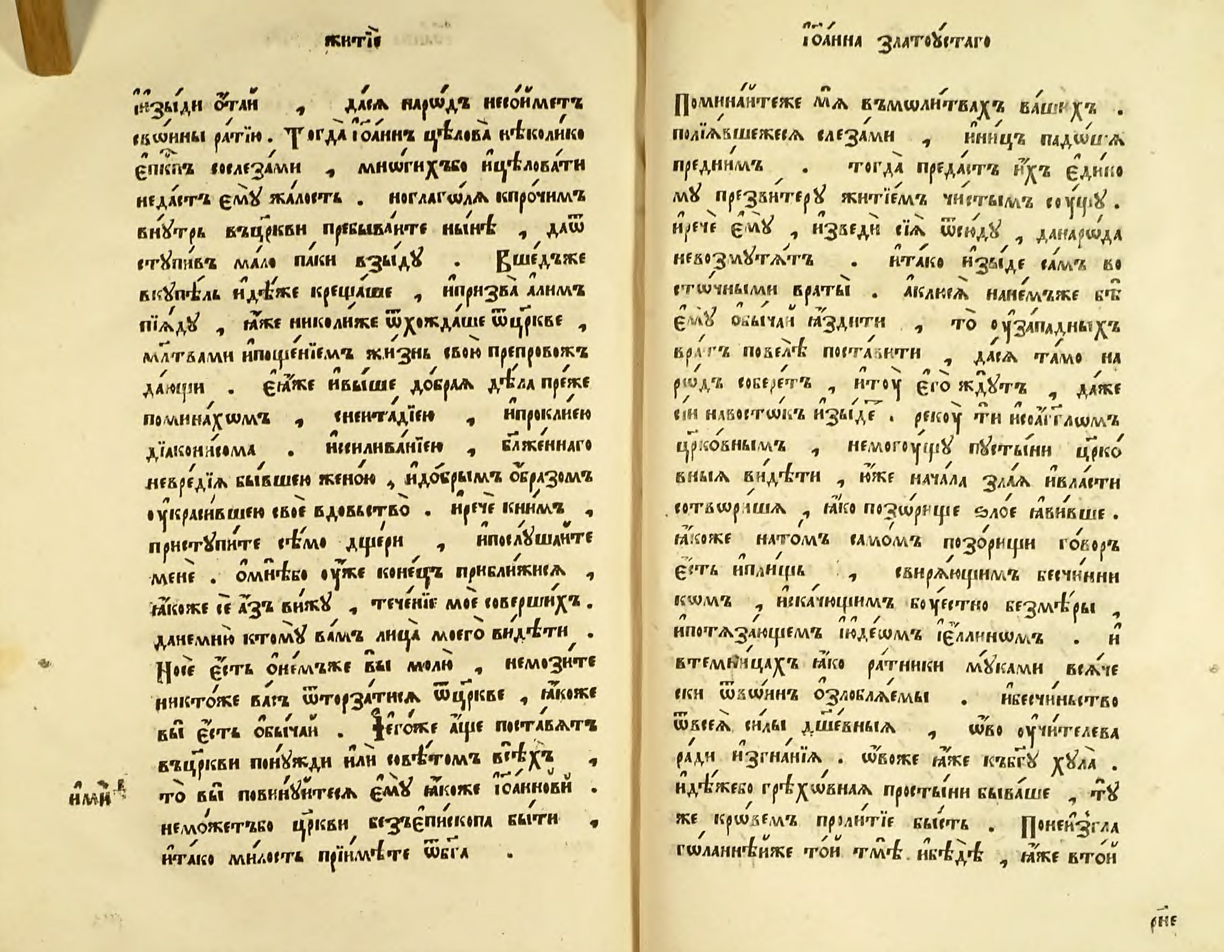 житїѐ
и҆зы́ди ѻ҆та́й , да́сѧ наро́дъ несо́йметъ
свѡ́ины ра́тїю . Тогда̀ і҆ѡа́ннъ цѣлова̀ нѣ́колико
е҆пⷭ҇кпъ сослеза́ми , мнѡ́гихъбо и҆цѣлова́ти
неда́стъ е҆мꙋ̀ жа́лость . ноглаго́лѧ кпро́чимъ
внꙋ́трь въцр҃кви пребыва́ите ны́нѣ , даѿ
стꙋпи́въ ма́ло па́ки взы́дꙋ . Вше́дъже
вкꙋпѣ́ль и҆дѣ́же креща́ше , и҆призва̀ а҆ли́мъ
пїѧ́дꙋ , ꙗ҆́же николи́же ѿхожда́ше ѿцр҃кве ,
мл҃твами и҆поще́нїемъ жи́знь свою̀ препрово́ж
да́ющи . е҆ѧ́же и҆вы́ше до́браѧ дѣ́ла пре́же
помина́хомъ , спента́дїею , и҆прокли́ею
дїакони́сома . и҆ссилива́нїею , бл҃же́ннаго
невре́дїѧ бы́вшею жено́ю , и҆до́брымъ ѻ҆́бразомъ
оу҆краси́вшею своѐ вдовьство̀ . и҆речѐ кни́мъ ,
пристꙋпи́те сѣ́мо дще́ри , и҆послꙋ́шайте
менѐ . ѻ҆мнѣ́бо оу҆́же коне́цъ прибли́жисѧ ,
ꙗ҆́коже сѐ а҆́зъ ви́жꙋ , тече́нїе моѐ соверши́хъ .
данемню̀ ктомꙋ̀ ва́мъ лица̀ моего̀ ви́дѣти .
Носѐ е҆́сть ѻ҆не́мъже вы̀ молю̀ , немози́те
никто́же ва́съ ѿторза́тисѧ ѿцр҃кве , ꙗ҆́коже
вы̀ е҆́сть ѻ҆бы́чай . Е҆го́же а҆́ще поста́вѧтъ
въцр҃кви понꙋ́жди и҆лѝ совѣ́томъ всѣ́хъ ,
то̀ вы̀ повинꙋ́йтесѧ е҆мꙋ̀ ꙗ҆́коже і҆ѡа́ннови .
немо́жетъбо цр҃кви безъе҆пи́скопа бы́ти ,
и҆та́ко ми́лость прїиме́те ѿбг҃а .
і҆ѡа́нна златоꙋ́стаго
Помина́йтеже мѧ̀ въмоли́твахъ ва́шихъ .
полїѧ́вшежесѧ слеза́ми , и҆ни́цъ падо́шѧ
предни́мъ . тогда̀ преда́стъ и҆́хъ е҆ди́но
мꙋ презви́терꙋ житїе́мъ чи́стымъ со́ущꙋ .
и҆речѐ е҆мꙋ̀ , и҆зведѝ сїѧ̀ ѿсю́дꙋ , данаро́да
невозмꙋтѧ́тъ . и҆та́ко и҆зы́де са́мъ во
сто́чными враты̀ . а҆клисѧ̀ нане́мъже бѣ̀
е҆мꙋ̀ ѻ҆бы́чай ꙗ҆́здити , то̀ оу҆за́падныхъ
вра́тъ повелѣ̀ поста́вити , да́сѧ та́мо на
ро́дъ собере́тъ , и҆тоу̀ е҆го̀ ждꙋ́тъ , да́же
сі́и навосто́къ и҆зы́де . рекоу̀ ти и҆соа҆́гг҃ломъ
цр҃ко́внымъ , немогоу́щꙋ пꙋсты́ни цр҃ко́
вныѧ ви́дѣти , ю҆́же нача́ла зла́ѧ и҆вла́сти
сотвори́шѧ , ꙗ҆́ко позо́рище ѕло́е ꙗ҆ви́вше .
ꙗ҆́коже нато́мъ само́мъ позо́рищи го́воръ
е҆́сть и҆пли́щь , свирѧ́ющимъ бесчи́нни
комъ , и҆скачю́щимъ боу́естно безмѣ́ры ,
и҆потѧза́ющемъ і҆юде́омъ і҆е҆́ллиномъ . и҆
втемни́цахъ ꙗ҆́ко ра́тники мꙋ́ками всѧ́че
ски ѿво́инъ ѻ҆злоблѧ́емы . и҆бесчи́ньство
ѿвсеѧ̀ си́лы дш҃е́вныѧ , ѡ҆́во оу҆чи́телева
ра́ди и҆згна́нїѧ . ѡ҆во́же ꙗ҆́же къбг҃ꙋ хꙋла̀ .
и҆дѣ́жебо грѣхо́внаѧ просты́ни быва́ше , тꙋ̀
же кро́вемъ проли́тїе бы́сть . Понеи҆згла
го́ланнѣ́йже то́й тмѣ̀ и҆бѣдѣ̀ , ꙗ҆́же вто́й
рн҃е